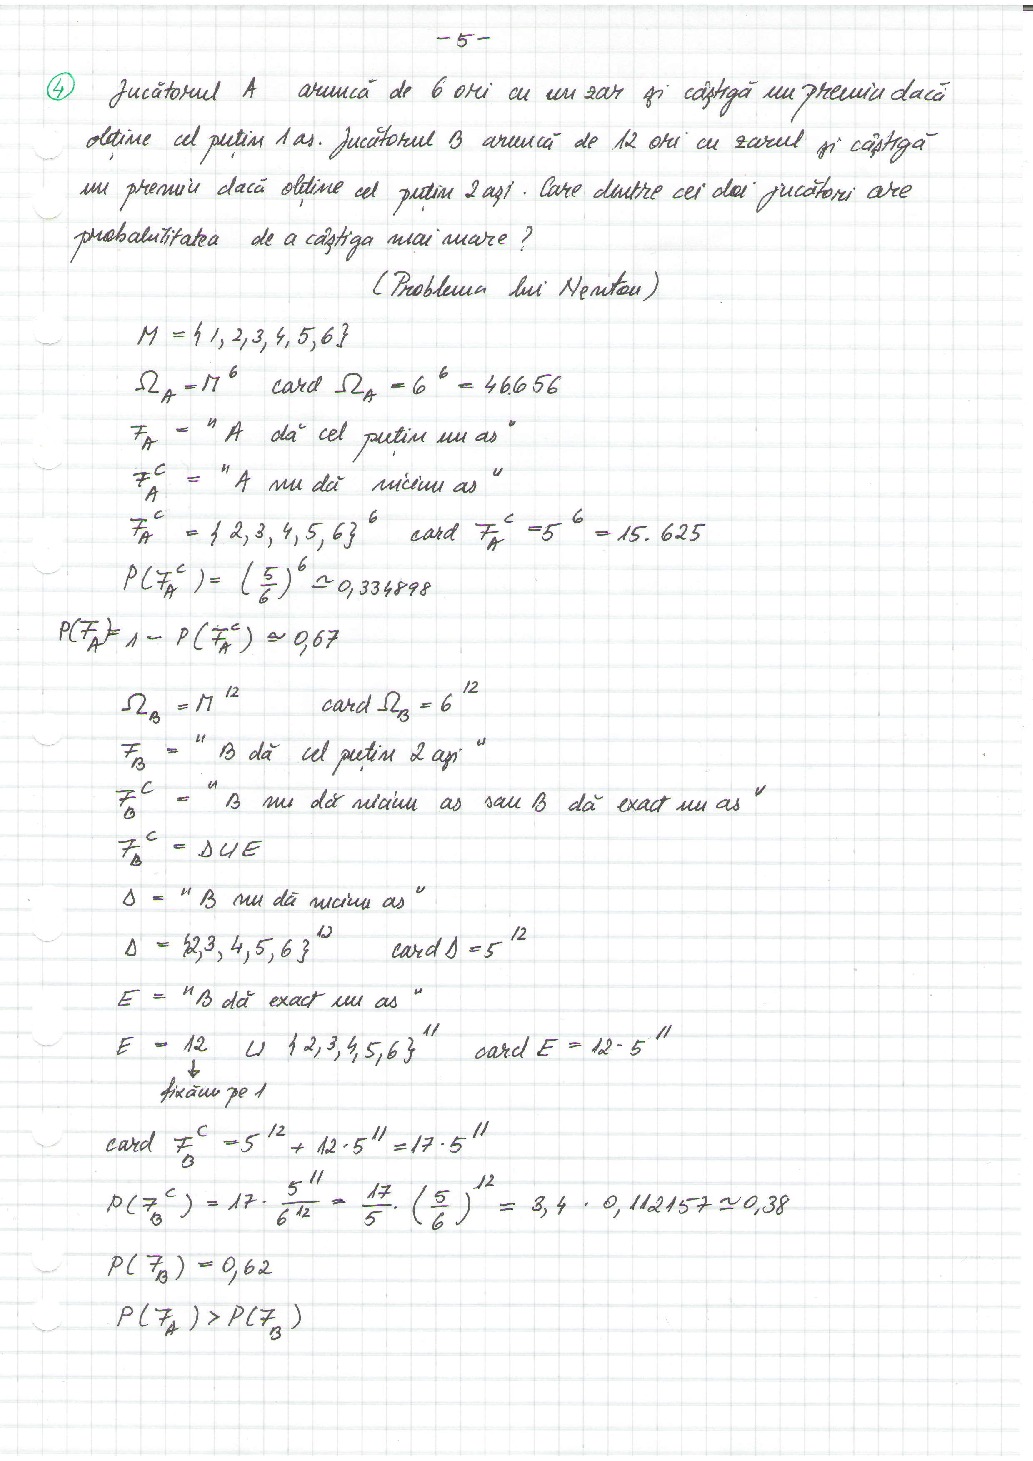 - 5 -
④ Jucătorul A aruncă de 6 ori cu un zar și câștigă un premiu dacă
obține cel puțin 1 as. Jucătorul B aruncă de 12 ori cu zarul și câștigă
un premiu dacă obține cel puțin 2 ași. Care dintre cei doi jucători are
probabilitatea de a câștiga mai mare?
(Problema lui Newton)
M = {1, 2, 3, 4, 5, 6}
Ω_A = M^6 card Ω_A = 6^6 = 46.656
F_A = "A dă cel puțin un as"
F_A^C = "A nu dă niciun as"
F_A^C = {2, 3, 4, 5, 6}^6 card F_A^C = 5^6 = 15.625
P(F_A^C) = (5/6)^6 ≃ 0,334898
P(F_A) = 1 - P(F_A^C) ≃ 0,67
Ω_B = M^12 card Ω_B = 6^12
F_B = "B dă cel puțin 2 ași"
F_B^C = "B nu dă niciun as sau B dă exact un as"
F_B^C = D ∪ E
D = "B nu dă niciun as"
D = {2, 3, 4, 5, 6}^12 card D = 5^12
E = "B dă exact un as"
E = 12 ∪ {2, 3, 4, 5, 6}^11 card E = 12 · 5^11
↓
fixăm pe 1
card F_B^C = 5^12 + 12 · 5^11 = 17 · 5^11
P(F_B^C) = 17 · 5^11/6^12 = 17/5 · (5/6)^12 = 3,4 · 0,112157 ≃ 0,38
P(F_B) = 0,62
P(F_A) > P(F_B)